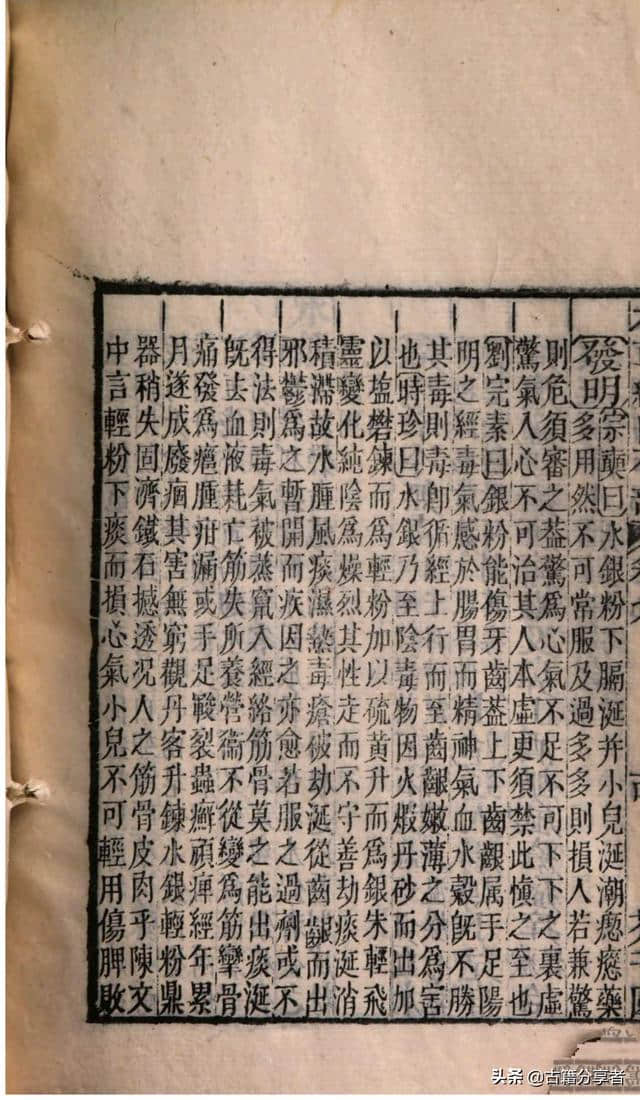 發明宗奭曰水銀粉下膈涎并小兒涎潮瘛瘲藥
多用然不可常服及過多多則損人若兼驚
則危須審之葢驚爲心氣不足不可下下之裏虛
驚氣入心不可治其人本虛更須禁此慎之至也
劉完素曰銀粉能傷牙齒葢上下齒齦属手足陽
明之經毒氣感於腸胃而精神氣血水穀旣不勝
其毒則毒卽循經上行而至齒齦嫩薄之分爲害
也時珍曰水銀乃至陰毒物因火煆丹砂而出加
以塩礬鍊而爲輕粉加以硫黃升而爲銀朱輕飛
靈變化純陰爲燥烈其性走而不守善劫痰涎消
積滯故水腫風痰濕熱毒瘡被劫涎從齒齦而出
邪鬱爲之暫開而疾因之亦愈若服之過劑或不
得法則毒氣被蒸竄入經絡筋骨莫之能出痰涎
旣去血液耗亡筋失所養營衞不從變爲筋攣骨
痛發爲癰腫疳漏或手足皸裂蟲癬頑痺經年累
月遂成廢痼其害無窮觀丹客升鍊水銀輕粉鼎
器稍失固濟鐵石撼透况人之筋骨皮肉乎陳文
中言輕粉下痰而損心氣小兒不可輕用傷脾敗
头条 @古籍分享者